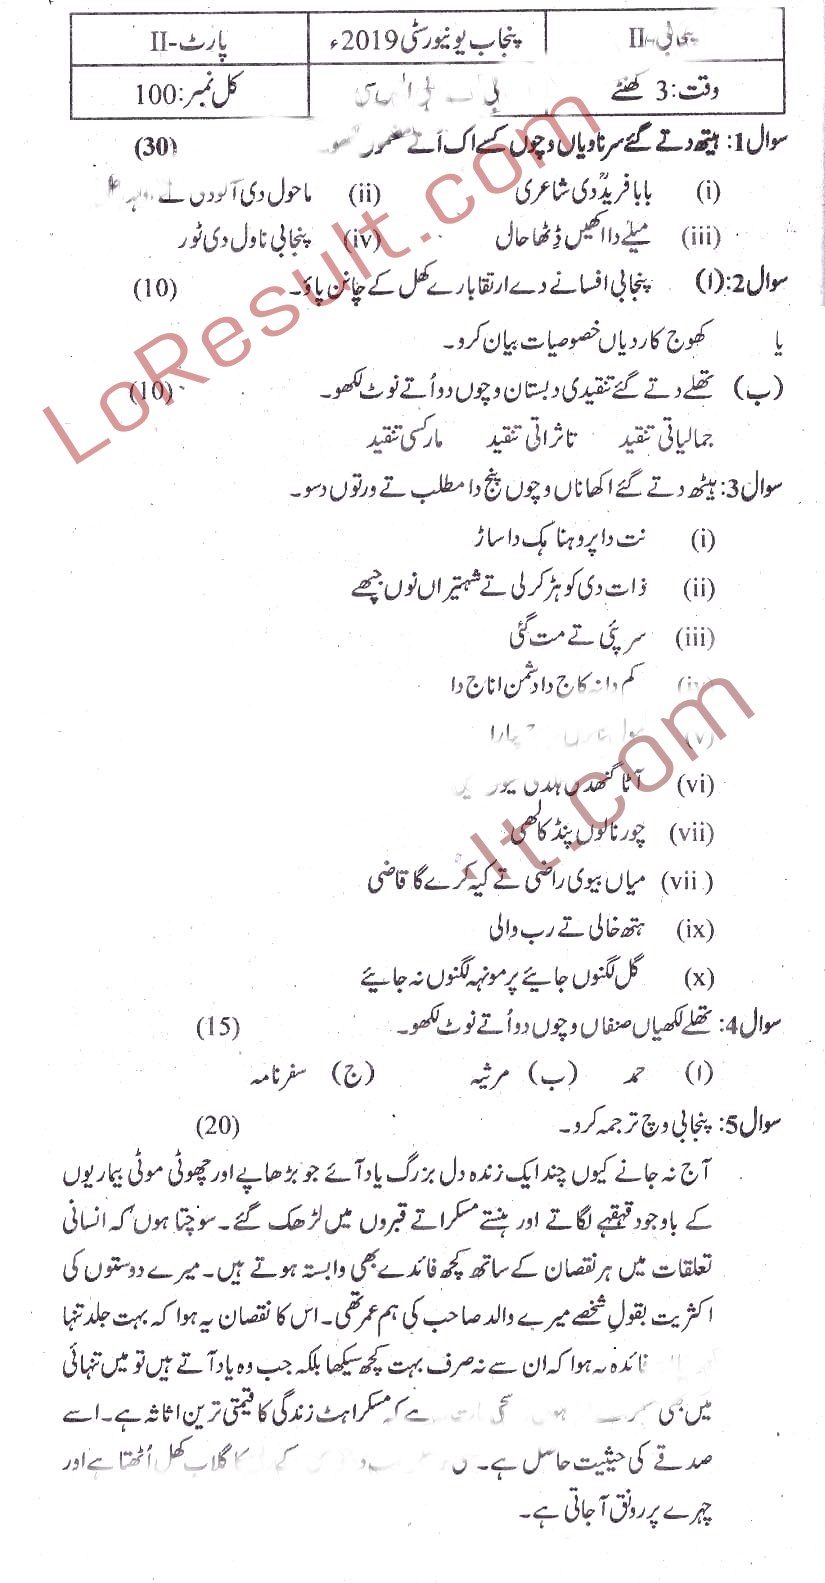 پنجابی-II پنجاب یونیورسٹی 2019ء پارٹ-II
وقت: 3 گھنٹے کل نمبر: 100
سوال 1: ہیٹھ دتے گئے سرناویاں وچوں کسے اک اُتے (30)
(i) بابا فریدؒ دی شاعری (ii) ماحول دی آلودگی
(iii) میلے دا اکھیں ڈِٹھا حال (iv) پنجابی ناول دی ٹور
سوال 2: (ا) پنجابی افسانے دے ارتقا بارے کھل کے چانن پاؤ۔ (10)
یا کھوج کار دیاں خصوصیات بیان کرو۔
(ب) تھلے دتے گئے تنقیدی دبستان وچوں دو اُتے نوٹ لکھو۔ (10)
جمالیاتی تنقید تاثراتی تنقید مارکسی تنقید
سوال 3: ہیٹھ دتے گئے اکھاناں وچوں پنج دا مطلب تے ورتوں دسو۔
(i) نت دا پروہنا ہک دا ساڑ
(ii) ذات دی کوہڑ کرلی تے شہتیراں نوں جپھے
(iii) سر پئی تے مت گئی
(iv) کم دا نہ کاج دا دشمن اناج دا
(v)
(vi) آٹا گنھدی ہلدی
(vii) چور نالوں پنڈ کالھی
(vii ) میاں بیوی راضی تے کیہ کرے گا قاضی
(ix) ہتھ خالی تے رب والی
(x) گل لگنوں جائیے پر مونہہ لگنوں نہ جائیے
سوال 4: تھلے لکھیاں صنفاں وچوں دو اُتے نوٹ لکھو۔ (15)
(ا) حمد (ب) مرثیہ (ج) سفرنامہ
سوال 5: پنجابی وچ ترجمہ کرو۔ (20)
آج نہ جانے کیوں چند ایک زندہ دل بزرگ یاد آئے جو بڑھاپے اور چھوٹی موٹی بیماریوں
کے باوجود قہقہے لگاتے اور ہنستے مسکراتے قبروں میں لڑھک گئے۔ سوچتا ہوں کہ انسانی
تعلقات میں ہر نقصان کے ساتھ کچھ فائدے بھی وابستہ ہوتے ہیں۔ میرے دوستوں کی
اکثریت بقولِ شخصے میرے والد صاحب کی ہم عمر تھی۔ اس کا نقصان یہ ہوا کہ بہت جلد تنہا
فائدہ یہ ہوا کہ ان سے نہ صرف بہت کچھ سیکھا بلکہ جب وہ یاد آتے ہیں تو میں تنہائی
میں بھی کہ مسکراہٹ زندگی کا قیمتی ترین اثاثہ ہے۔ اسے
صدقے کی حیثیت حاصل ہے۔ کا گلاب کھل اُٹھتا ہے اور
چہرے پر رونق آ جاتی ہے۔
LoResult.com
lt.com